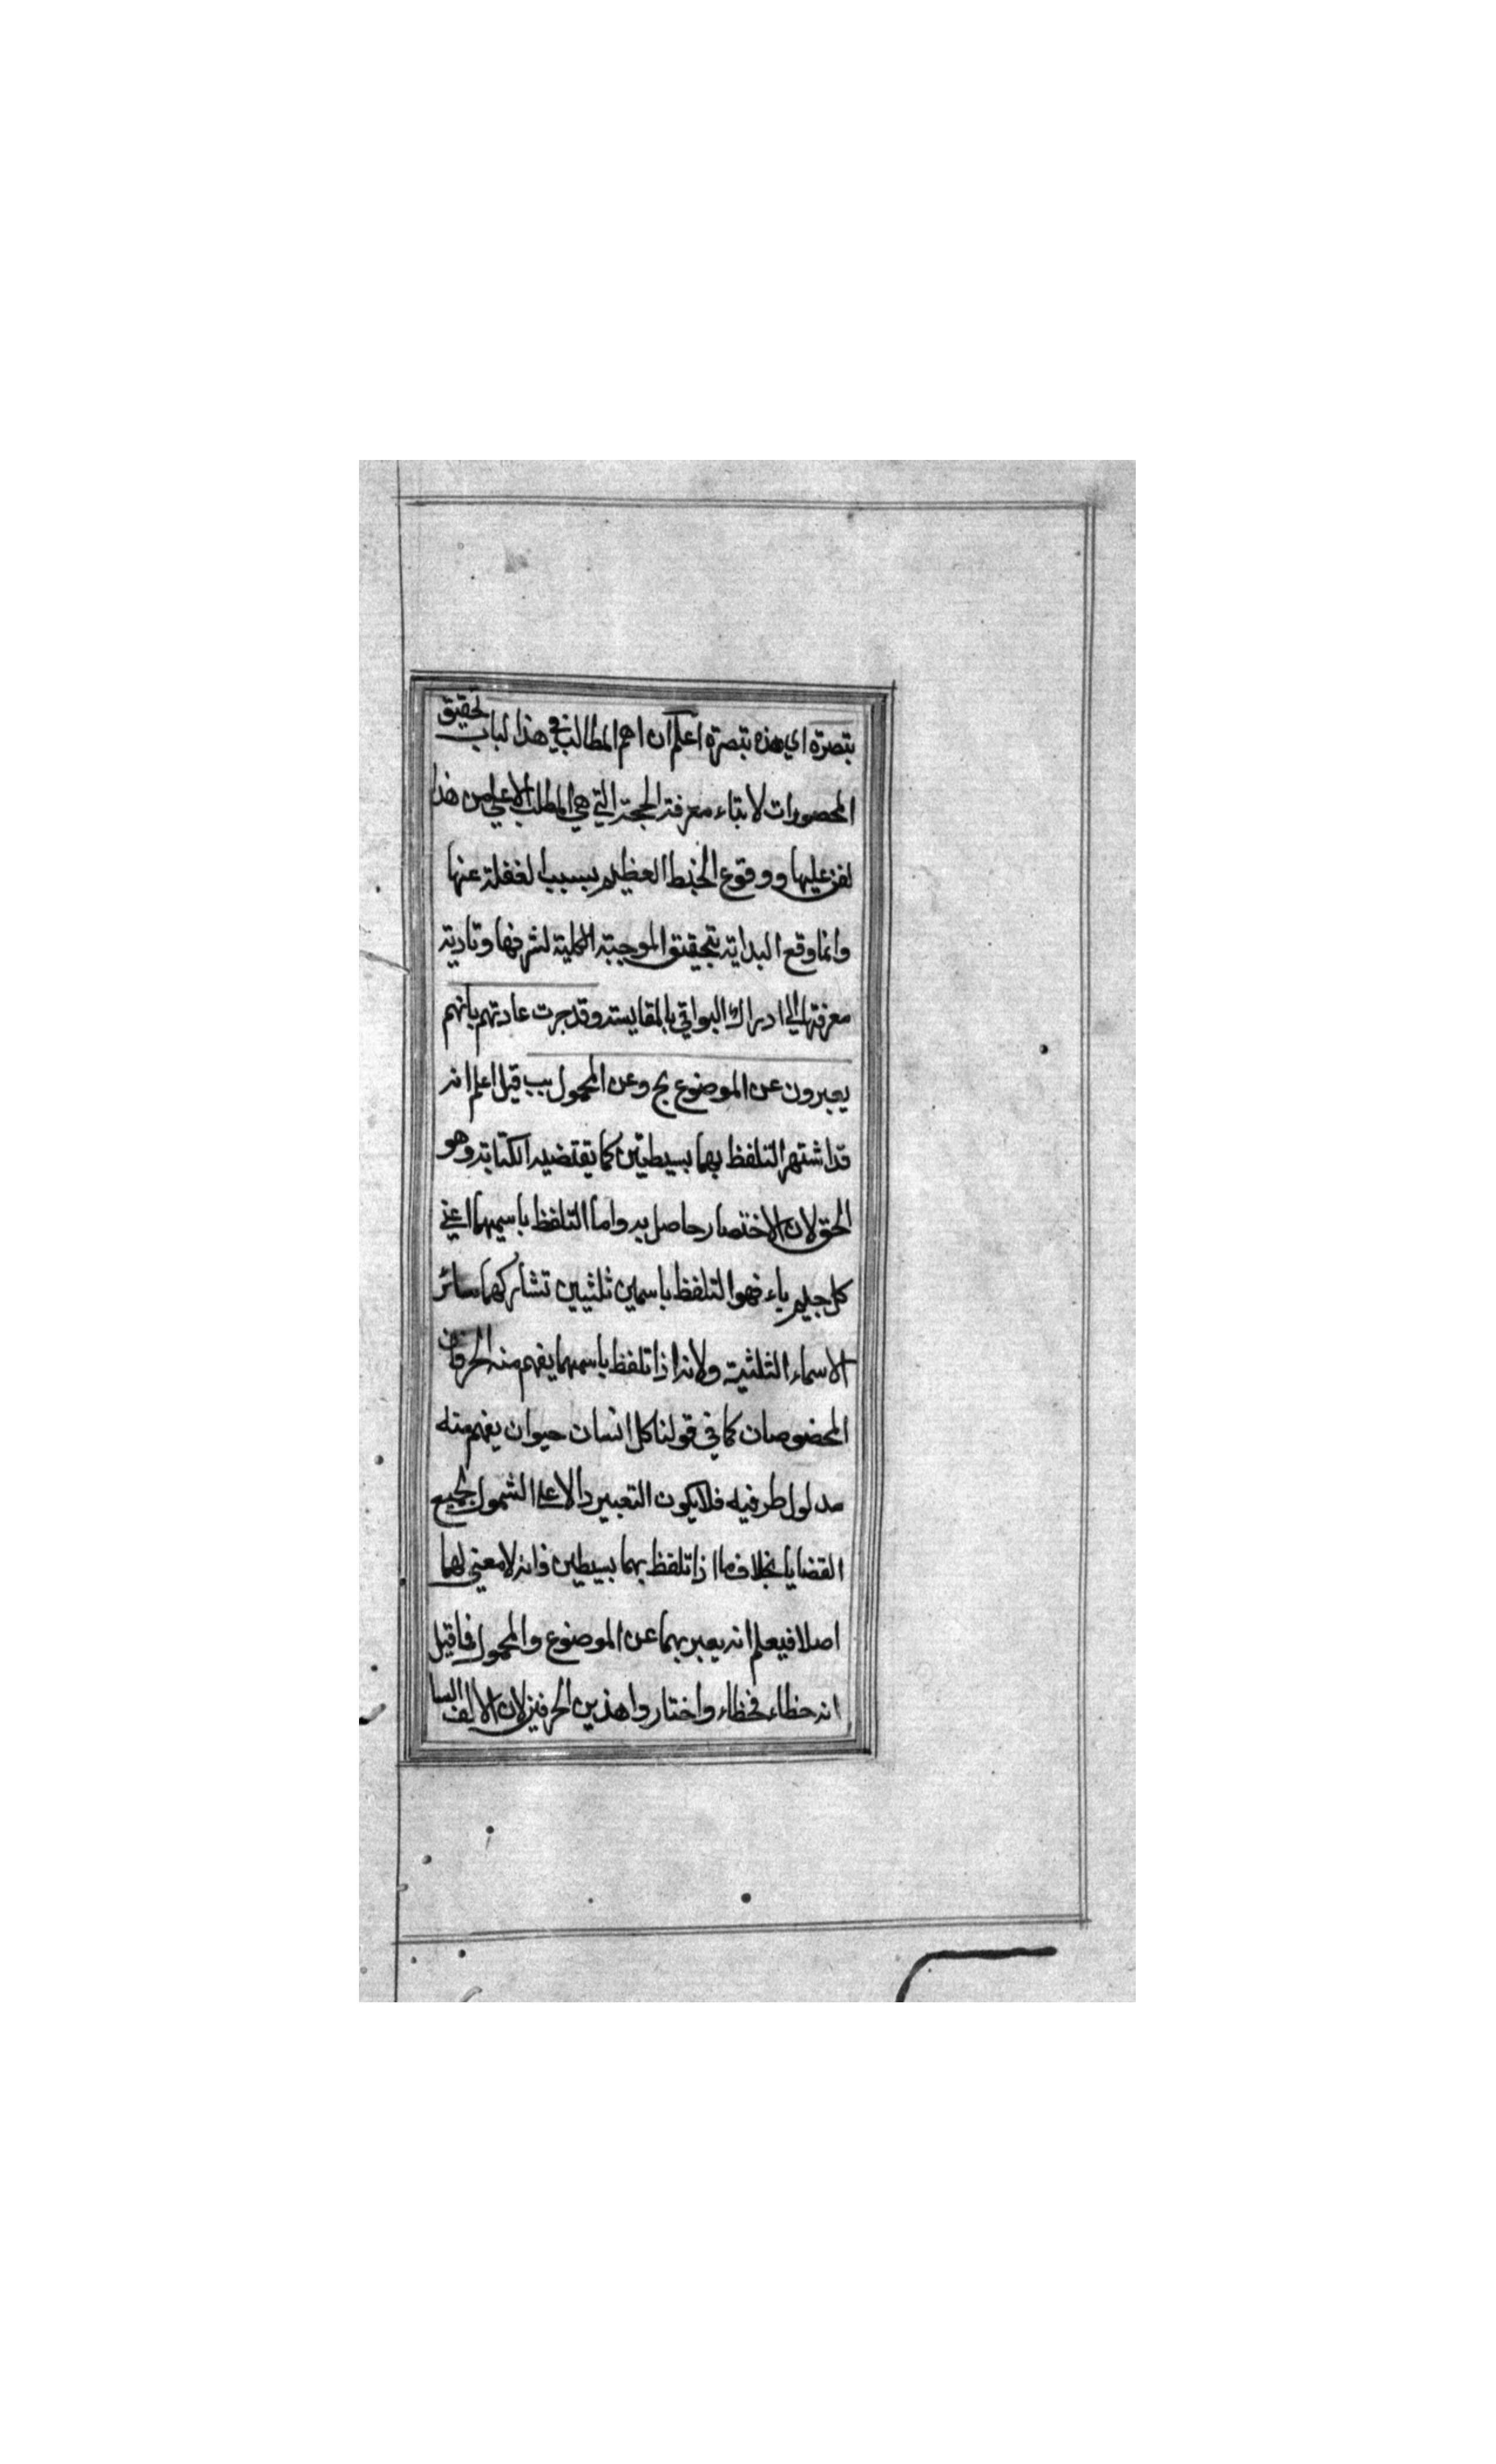 تبصرة اي هذه تبصرة اعلم ان اهم المطالب في هذا الباب تحقيق
المحصورات لابتناء معرفة الحجة التي هي المطلب الاعلى من هذا
لفن عليها ووقوع الخبط العظيم بسبب الغفلة عنها
وانما وقع البداية بتحقيق الموجبة الكلية لشرفها وتادية
معرفتها الى ادراك البواقي بالمقايسة وقد جرت عادتهم بانهم
يعبرون عن الموضوع بج وعن المحمول بب قيل اعلم انه
قد اشتهر التلفظ بهما بسيطتين كما يقتضيه الكتابة وهو
الحق لان الاختصار حاصل به واما التلفظ باسميهما اعني
كل جيم باء فهو التلفظ باسمين ثلثيين تشاركهما سائر
الاسماء الثلثية ولانه اذا تلفظ باسمهما يفهم منه الحرفان
المخصوصان كما في قولنا كل انسان حيوان يفهم منه
مدلول طرفيه فلا يكون التعبير دالا على الشمول لجميع
القضايا بخلاف ما اذا تلفظ بهما بسيطين فانه لا معني لهما
اصلا فيعلم انه يعبر بهما عن الموضوع والمحمول فما قيل
انه خطاء فخطاء واختاروا هذين الحرفين لان الالف السا